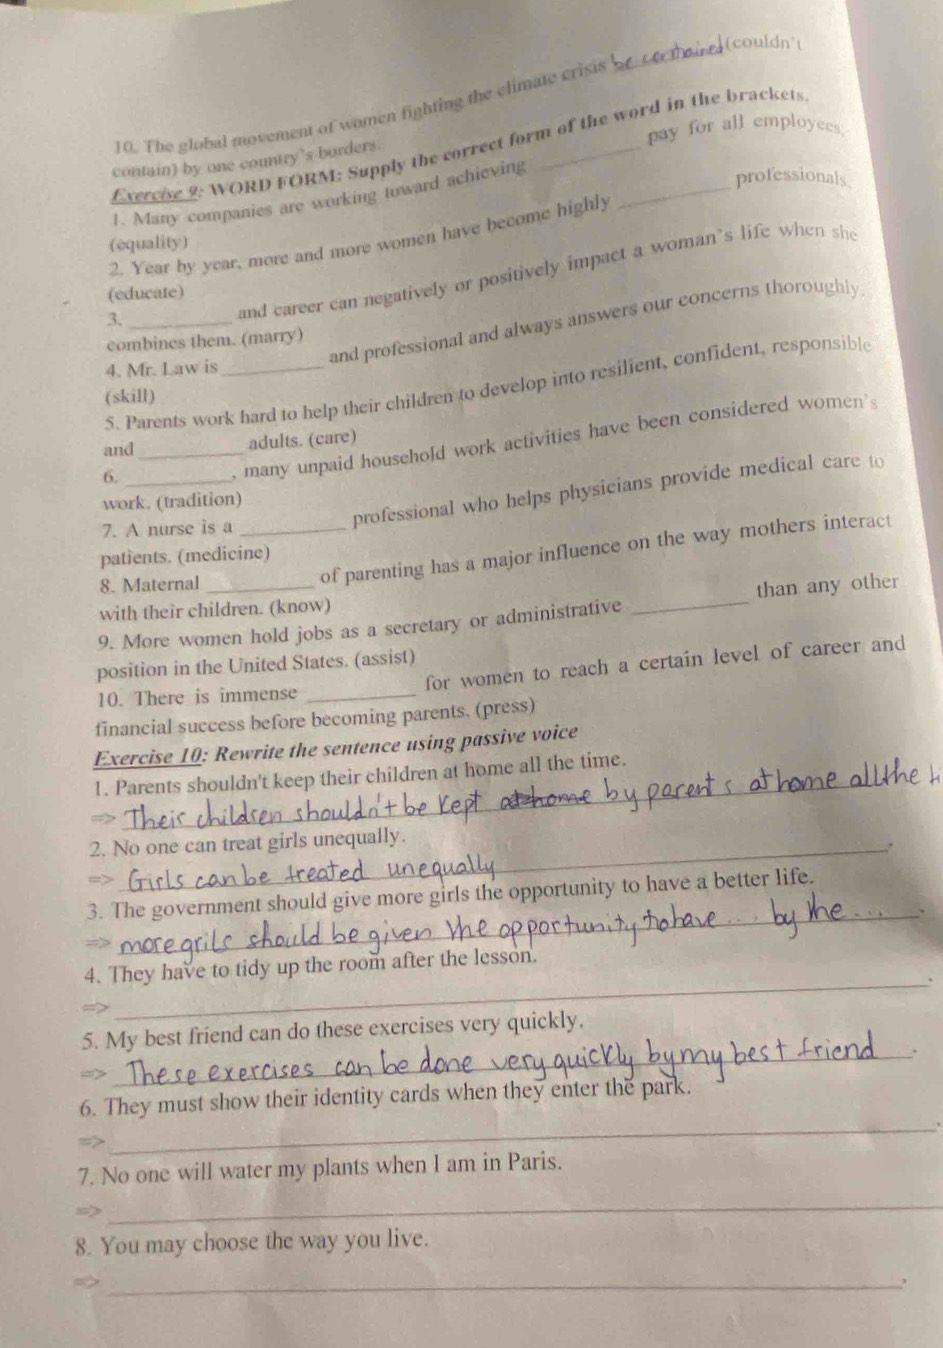 10. The global movement of women fighting the climate crisis be contained (couldn't
contain) by one country's borders.
Exercise 9: WORD FORM: Supply the correct form of the word in the brackets.
1. Many companies are working toward achieving __________ pay for all employees.
(equality)
2. Year by year, more and more women have become highly __________ professionals.
(educate)
3. __________ and career can negatively or positively impact a woman's life when she
combines them. (marry)
4. Mr. Law is __________ and professional and always answers our concerns thoroughly.
(skill)
5. Parents work hard to help their children to develop into resilient, confident, responsible
and __________ adults. (care)
6. __________, many unpaid household work activities have been considered women's
work. (tradition)
7. A nurse is a __________ professional who helps physicians provide medical care to
patients. (medicine)
8. Maternal __________ of parenting has a major influence on the way mothers interact
with their children. (know)
9. More women hold jobs as a secretary or administrative __________ than any other
position in the United States. (assist)
10. There is immense __________ for women to reach a certain level of career and
financial success before becoming parents. (press)
Exercise 10: Rewrite the sentence using passive voice
1. Parents shouldn't keep their children at home all the time.
=> Their children shouldn't be kept at home by parents at home all the
2. No one can treat girls unequally.
=> Girls can be treated unequally .
3. The government should give more girls the opportunity to have a better life.
=> more grils should be given the opportunity to have ... by the ... .
4. They have to tidy up the room after the lesson.
=> __________.
5. My best friend can do these exercises very quickly.
=> These exercises can be done very quickly by my best friend .
6. They must show their identity cards when they enter the park.
=> __________.
7. No one will water my plants when I am in Paris.
=> __________
8. You may choose the way you live.
=> __________.